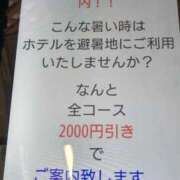 内！！
こんな暑い時は
ホテルを避暑地にご利用
いたしませんか？
なんと
全コース
2000円引き
で
ご案内致します